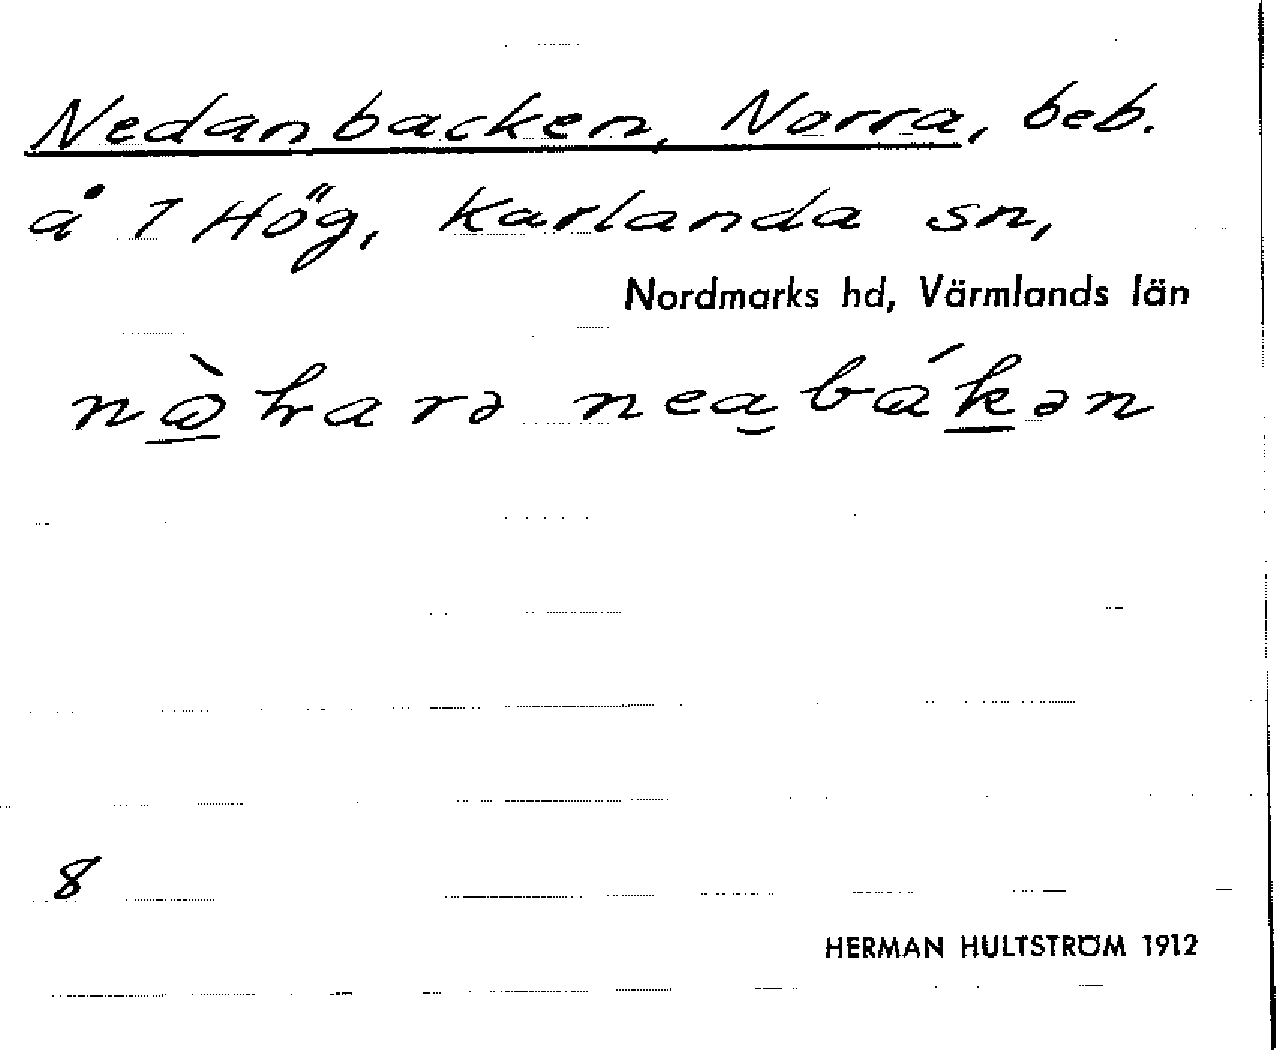 Nedanbacken, Norra, beb.
å 1 Hög, Karlanda sn,
Nordmarks hd, Värmlands län
8
HERMAN HULTSTRÖM 1912